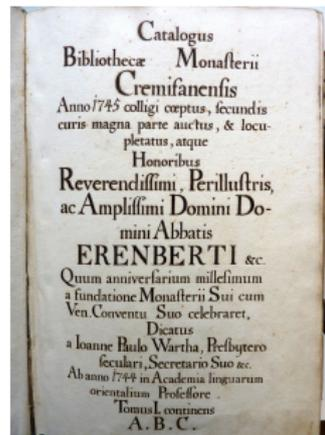 Catalogus
Bibliothecæ Monasterii
Cremifanensis
Anno 1745 colligi cœptus, secundis
curis magna parte auctus, & locu-
pletatus, atque
Honoribus
Reverendissimi, Perillustris,
ac Amplissimi Domini Do-
mini Abbatis
ERENBERTI &c.
Quum anniversarium millesimum
a fundatione Monasterii Sui cum
Ven. Conventu Suo celebraret,
Dicatus
a Ioanne Paulo Wartha, Presbytero
seculari, Secretario Suo &c.
Ab anno 1744 in Academia linguarum
orientalium Professore.
Tomus I. continens
A. B. C.